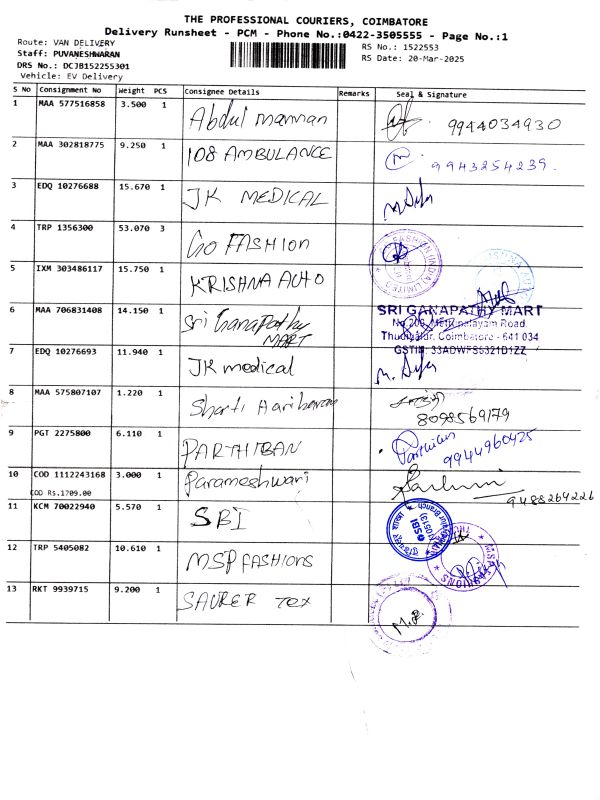 THE PROFESSIONAL COURIERS, COIMBATORE
Delivery Runsheet - PCM - Phone No.:0422-3505555 - Page No.:1
Route: VAN DELIVERY
RS No.: 1522553
Staff: PUVANESHWARAN
RS Date: 20-Mar-2025
DRS No.: DCJB152255301
Vehicle: EV Delivery
S No Consignment No Weight PCS Consignee Details Remarks Seal & Signature
1 MAA 577516858 3.500 1 Abdul mannan 9944034930
2 MAA 302818775 9.250 1 108 AMBULANCE 9943254239.
3 EDQ 10276688 15.670 1 JK MEDICAL
4 TRP 1356300 53.070 3 GO FASHION
5 IXM 303486117 15.750 1 KRISHNA AUTO
6 MAA 706831408 14.150 1 Sri Ganapathy MART
SRI GANAPATHY MART
Thudiyalur, Coimbatore - 641 034
7 EDQ 10276693 11.940 1 JK medical
8 MAA 575807107 1.220 1 8098569179
9 PGT 2275800 6.110 1 PARTHIBAN Parthiban 9944960425
10 COD 1112243168 3.000 1 Parameshwari 9488264226
COD Rs.1709.00
11 KCM 70022940 5.570 1 SBI
SBI
12 TRP 5405082 10.610 1 MSP FASHIONS
13 RKT 9939715 9.200 1 SAURER Tex